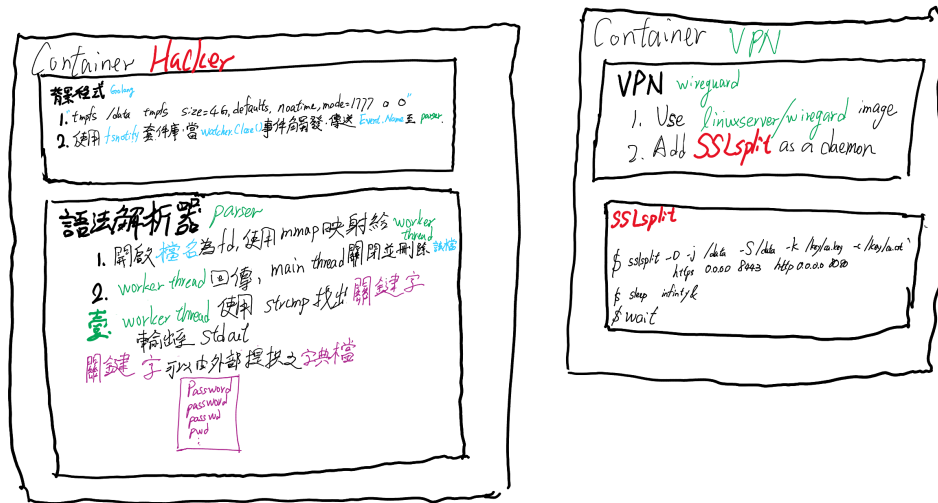 Container Hacker
背景程式 Golang
1. "tmpfs /data tmpfs size=4G, defaults, noatime, mode=1777 0 0"
2. 使用 fsnotify 套件庫.當 watcher.Close() 事件觸發.傳送 Event.Name 至 parser.
語法解析器 parser
1. 開啟檔名為fd, 使用 mmap 映射給 worker thread
2. worker thread 回傳, main thread 關閉並刪除 該檔
worker thread 使用 strcmp 找出 關鍵字
輸出至 stdout
關鍵字可以由外部提換之字典檔
Password
password
passwd
pwd
:
Container VPN
VPN wireguard
1. Use linuxserver/wiregard image
2. Add SSLsplit as a daemon
SSLsplit
$ sslsplit -D -j /data -S /data -k /key/ca.key -c /key/ca.crt \
https 0.0.0.0 8443 http 0.0.0.0 8080
$ sleep infinity &
$ wait